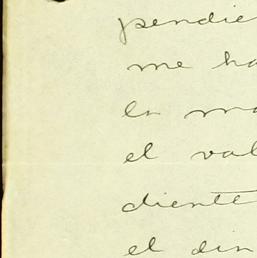 pendie
me ha
la ma
el val
diente
el din